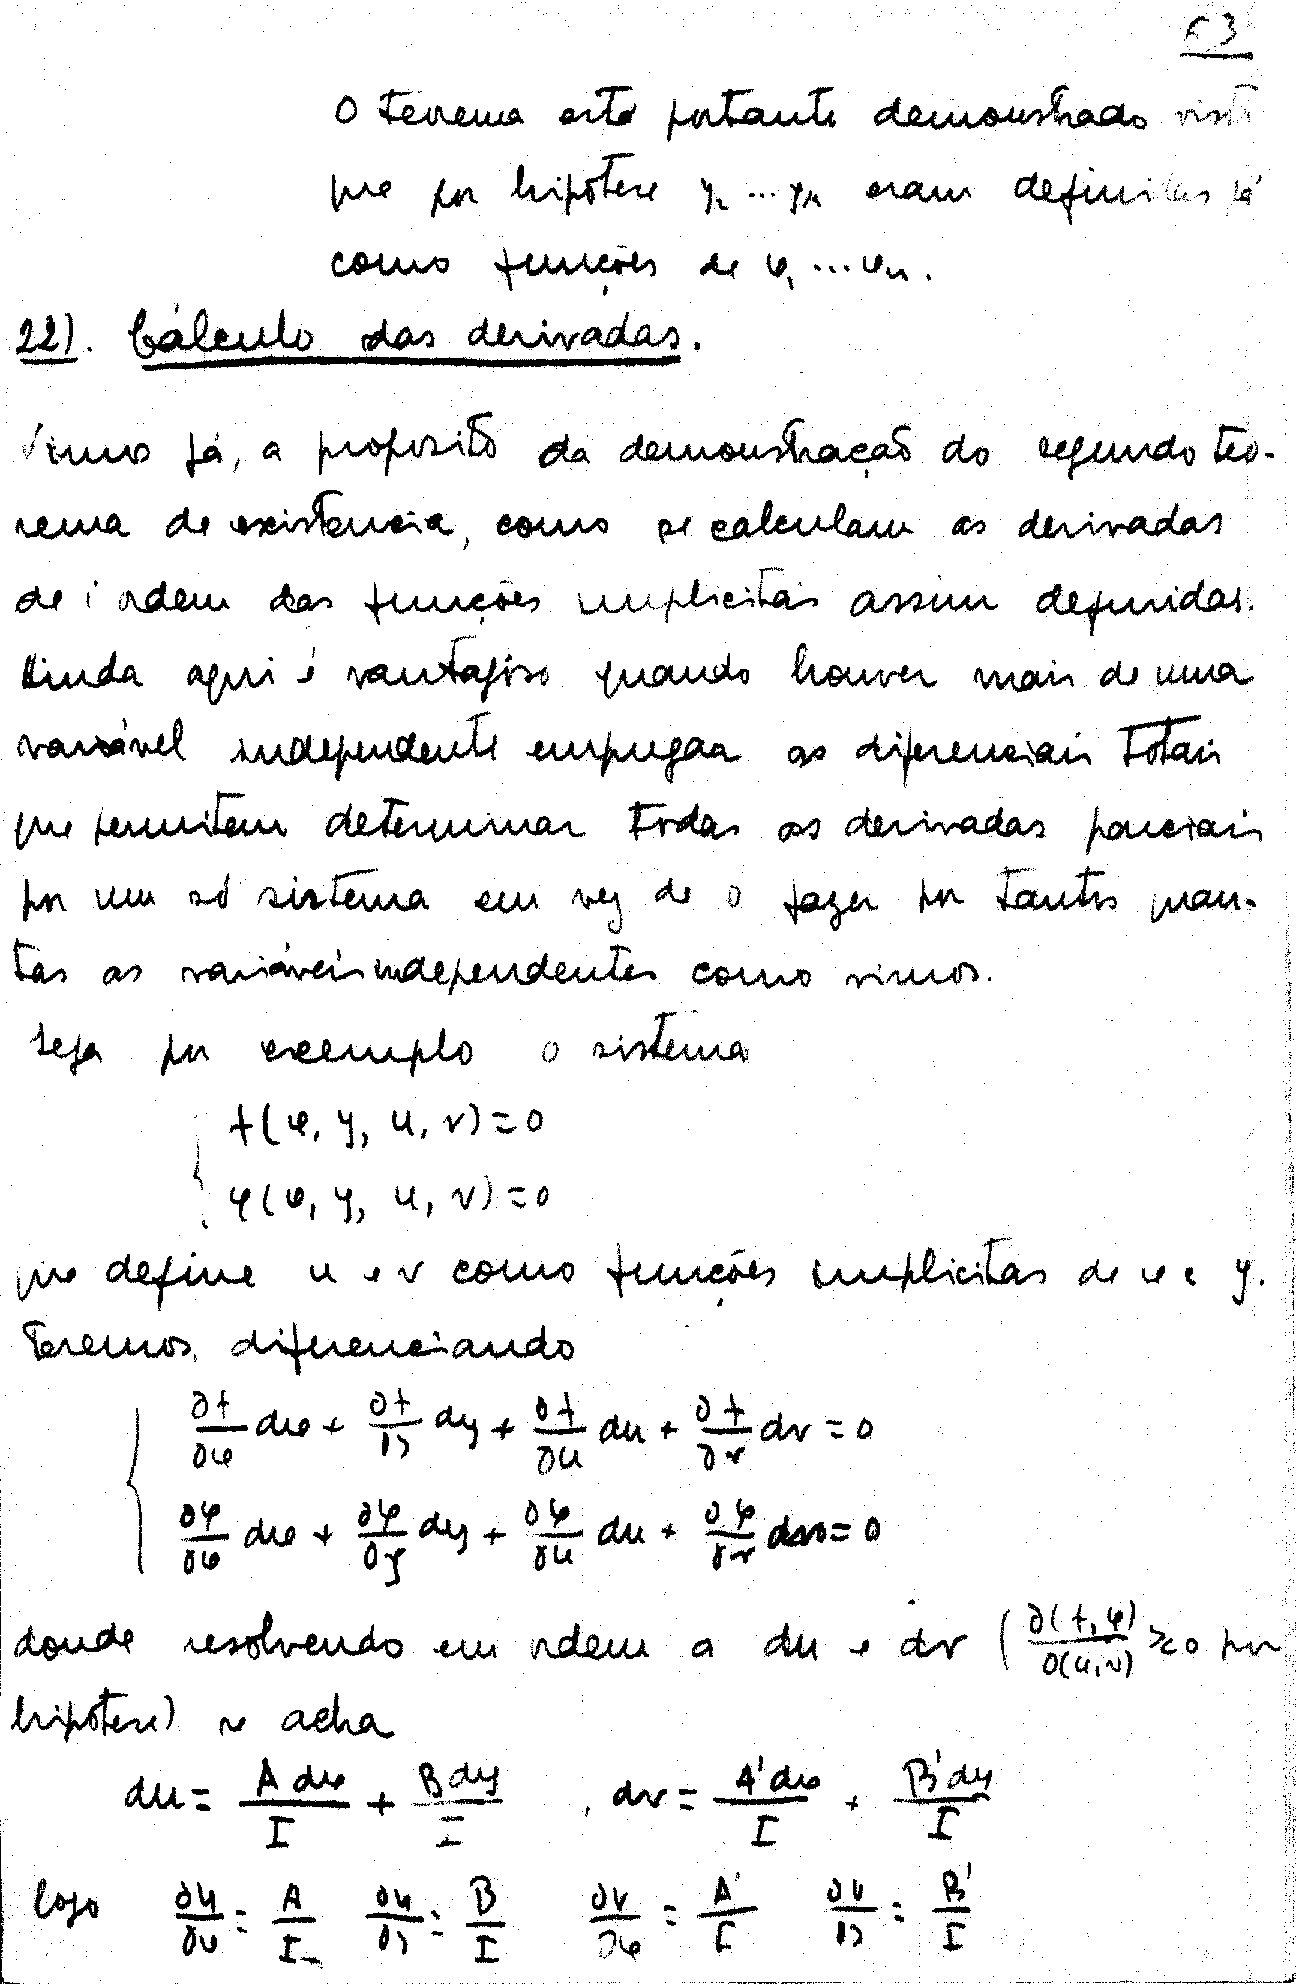 53
O teorema está portanto demonstrado visto
que por hipótese y₁ ... yₙ eram definidas já
como funções de x₁ ... xₙ.
22). Cálculo das derivadas.
Vimos já, a proposito da demonstração do segundo teo-
rema de existencia, como se calculam as derivadas
de 1ª ordem das funções implicitas assim definidas.
Ainda aqui é vantajoso quando houver mais de uma
variável independente empregar as diferenciais totais
que permitem determinar todas as derivadas parciais
por um só sistema em vez de o fazer por tantos quan-
tas as variáveis independentes como vimos.
Seja por exemplo o sistema
f(x, y, u, v)=0
φ(x, y, u, v)=0
que define u e v como funções implicitas de x e y.
Teremos, diferenciando
∂f/∂x dx + ∂f/∂y dy + ∂f/∂u du + ∂f/∂v dv = 0
∂φ/∂x dx + ∂φ/∂y dy + ∂φ/∂u du + ∂φ/∂v dv = 0
donde resolvendo em ordem a du e dv (∂(f,φ)/∂(u,v) ≷ 0 por
hipótese) se acha
du = A dx/I + B dy/I , dv = A' dx/I + B' dy/I
logo ∂u/∂x = A/I ∂u/∂y = B/I ∂v/∂x = A'/I ∂v/∂y = B'/I